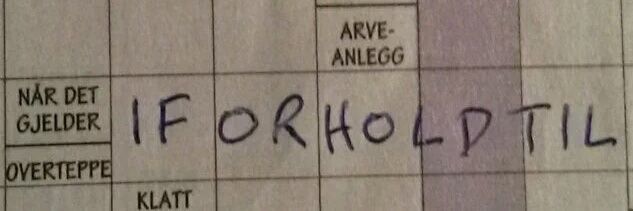 ARVE-
ANLEGG
NÅR DET
GJELDER
IFORHOLDTIL
OVERTEPPE
KLATT